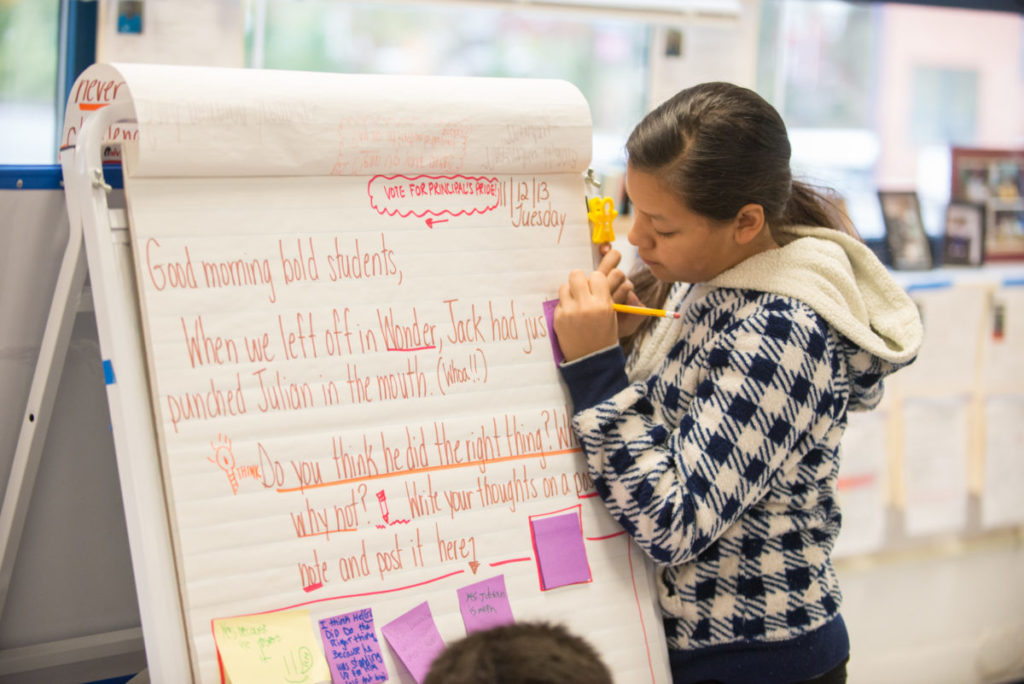 never
VOTE FOR PRINCIPAL'S PRIDE!
11/12/13
Tuesday
Good morning bold students,
When we left off in Wonder, Jack had jus
punched Julian in the mouth. (Whoa!!)
THINK
Do you think he did the right thing? W
why not? Write your thoughts on a po
note and post it here
Yes because
it
I think He
Did Do the
Right thing
Because he
was standing
up for him